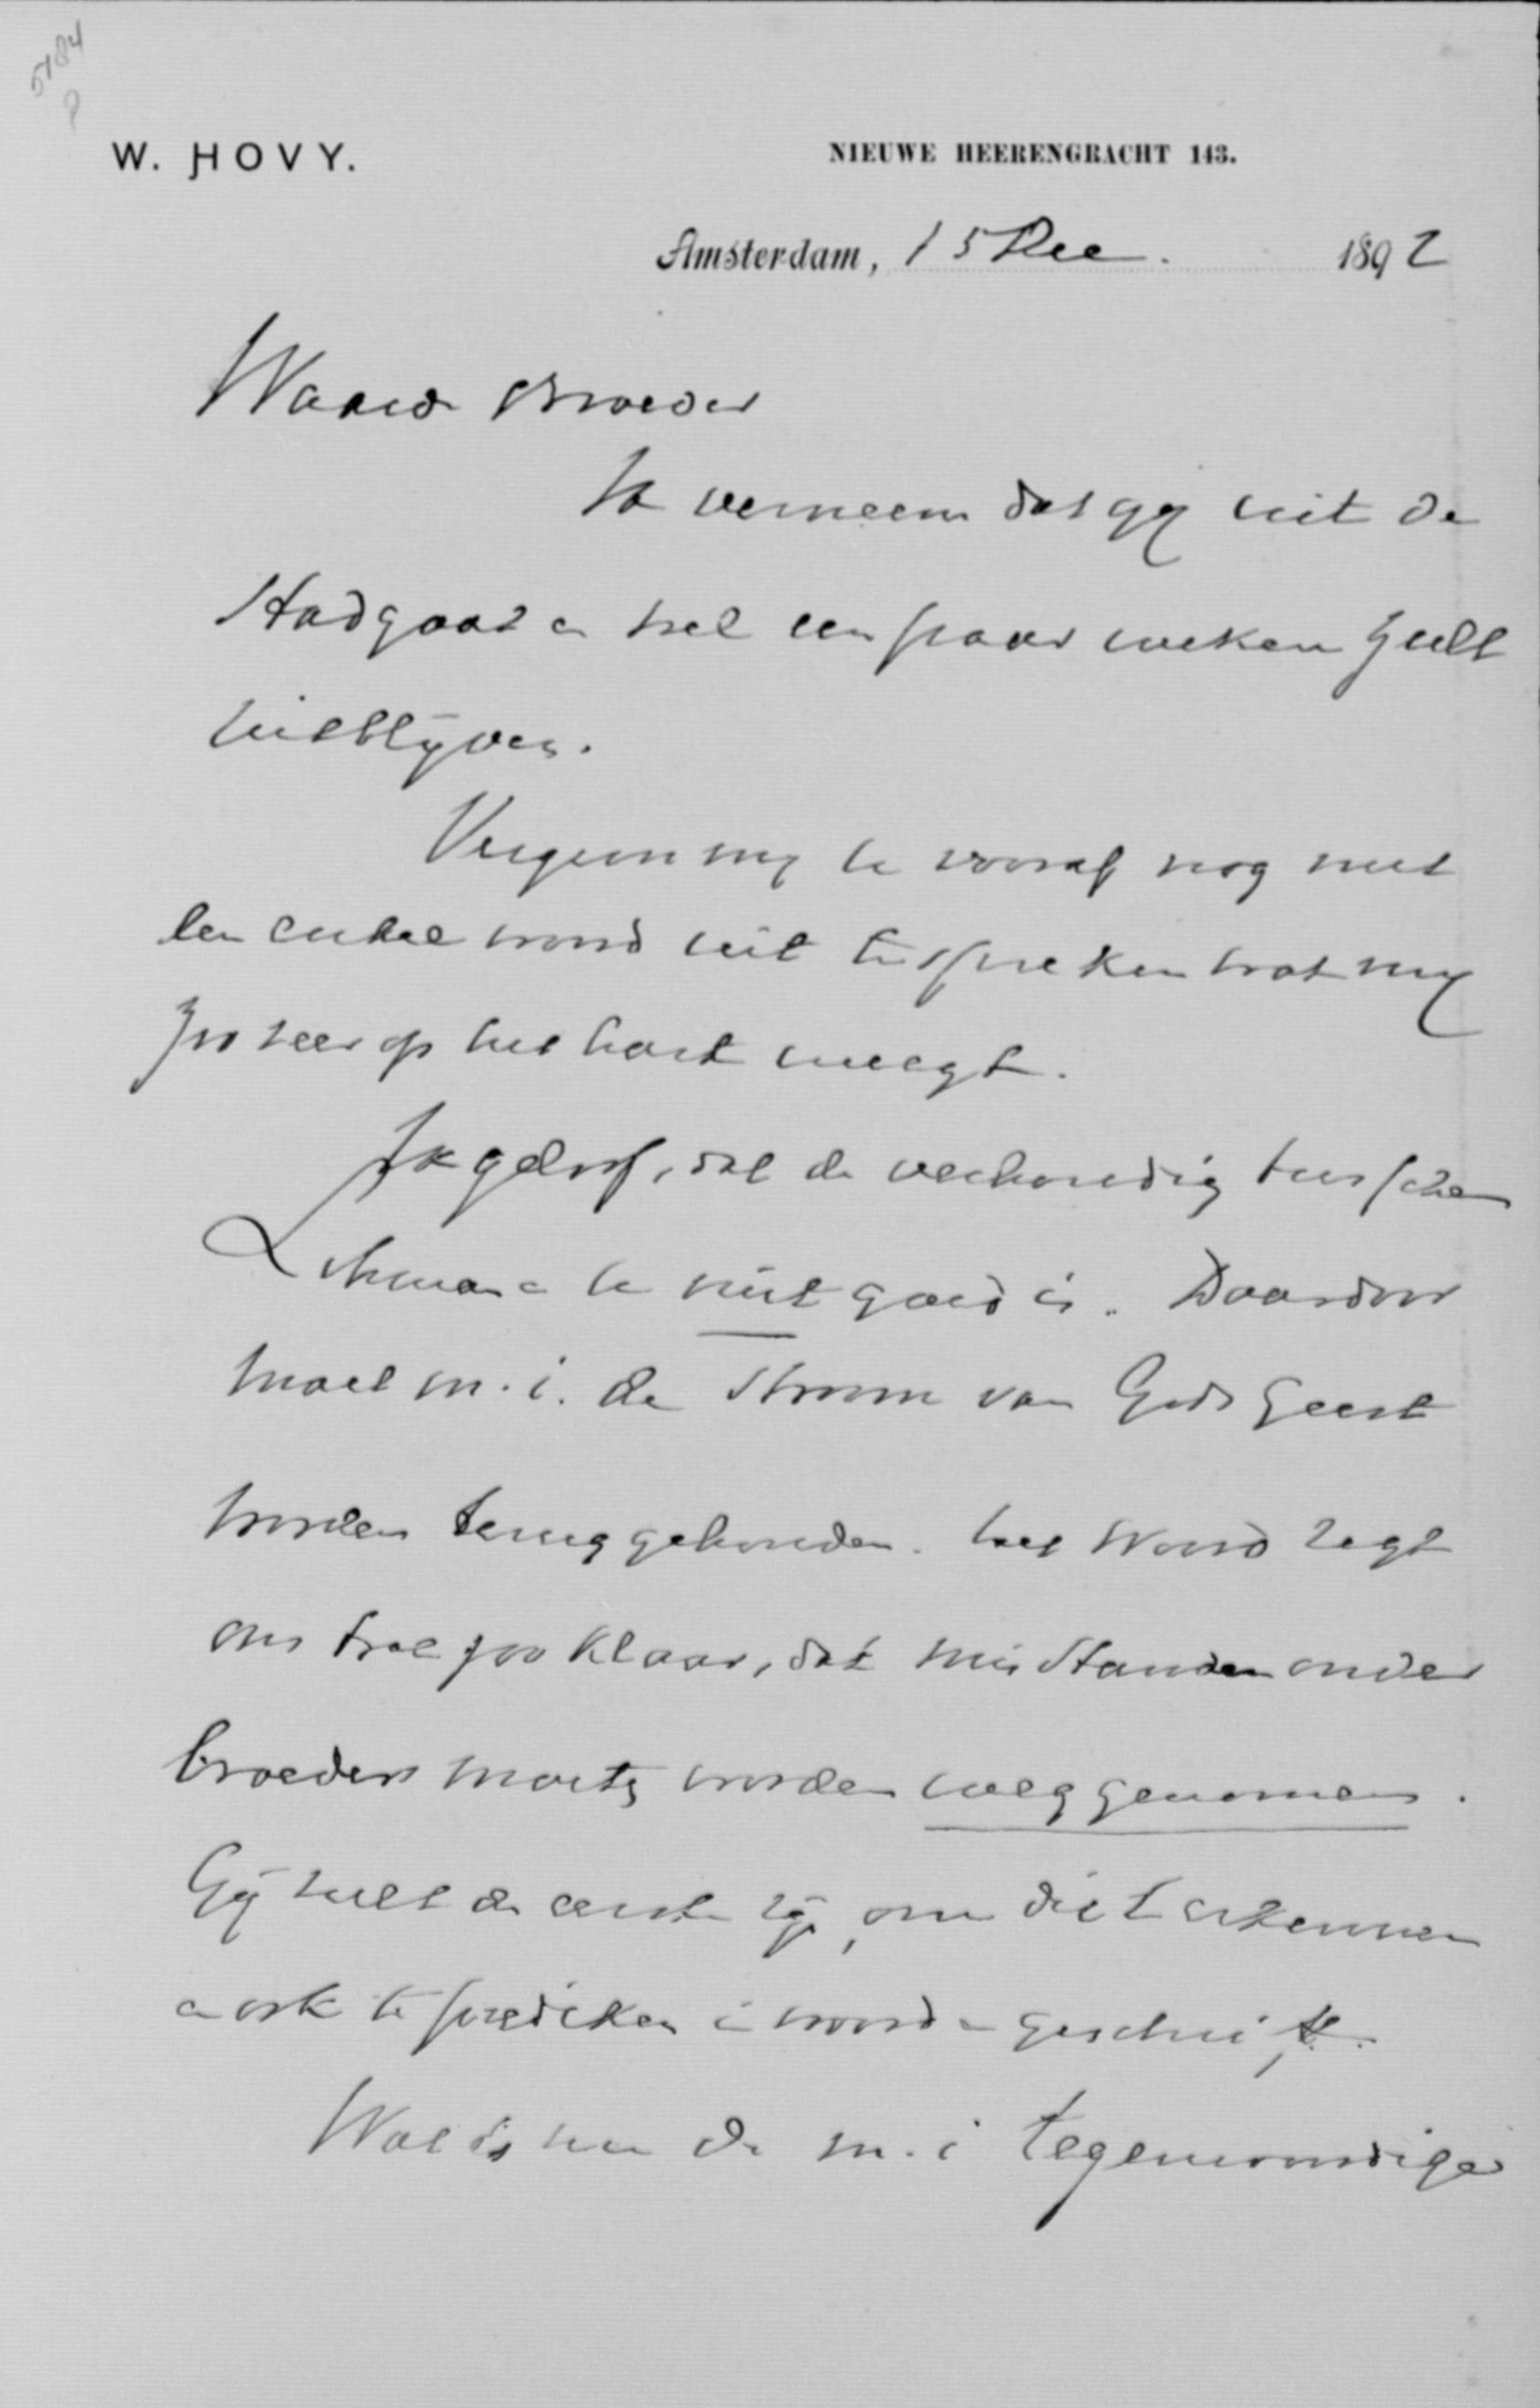 5184
W. HOVY.
NIEUWE HEERENGRACHT 143.
Amsterdam, 15 Dec. 1892
Waarde Broeder
Ik verneem dat gij uit de
stad gaat en wel een paar weken zult
uitblijven.
Vergun mij te vooraf nog met
een enkel woord uit te spreken wat mij
zoo zeer op het hart weegt.
Ik geloof, dat de verhouding tusschen
Lohman en U niet goed is. Daardoor
moet m.i. de stroom van Gods Geest
worden teruggehouden. Het Woord zegt
ons toch zoo klaar, dat misstanden onder
broeders moeten worden weggenomen.
Gij zult de eerste zijn, om dit t erkennen
en ook te prediken in woord en geschrift.
Wat is nu de m.i tegenwoordige